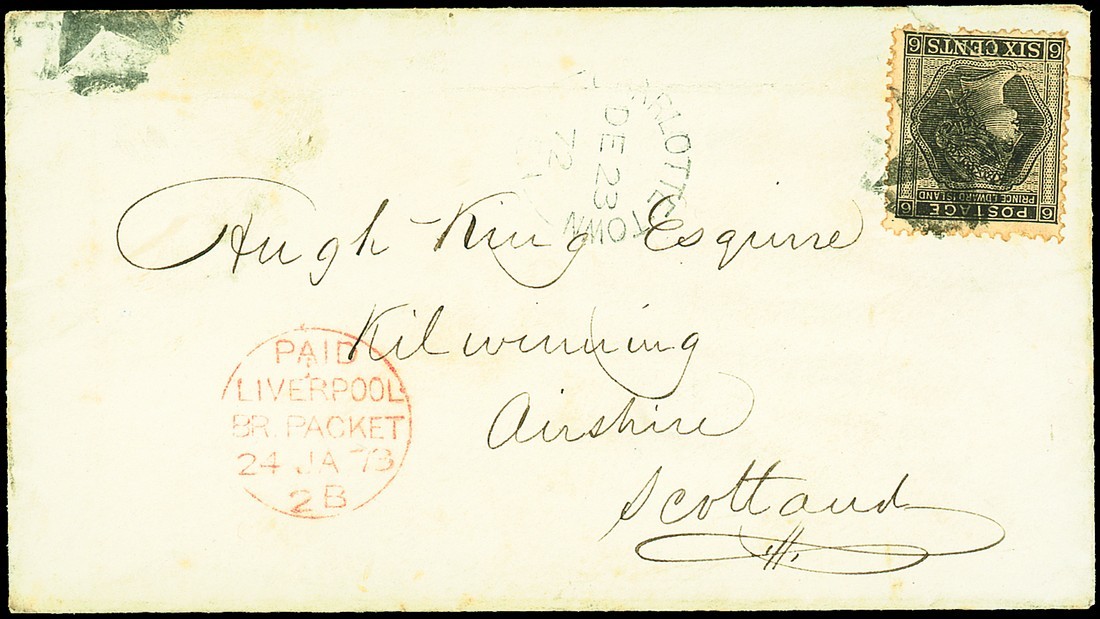 6 SIX CENTS 6
6 POSTAGE 6
PRINCE EDWARD ISLAND
ARLOTTETOWN
DE 23
72
Hugh King Esquire
Kilwinning
Airshire
Scotland
PAID
LIVERPOOL
BR. PACKET
24 JA 73
2B